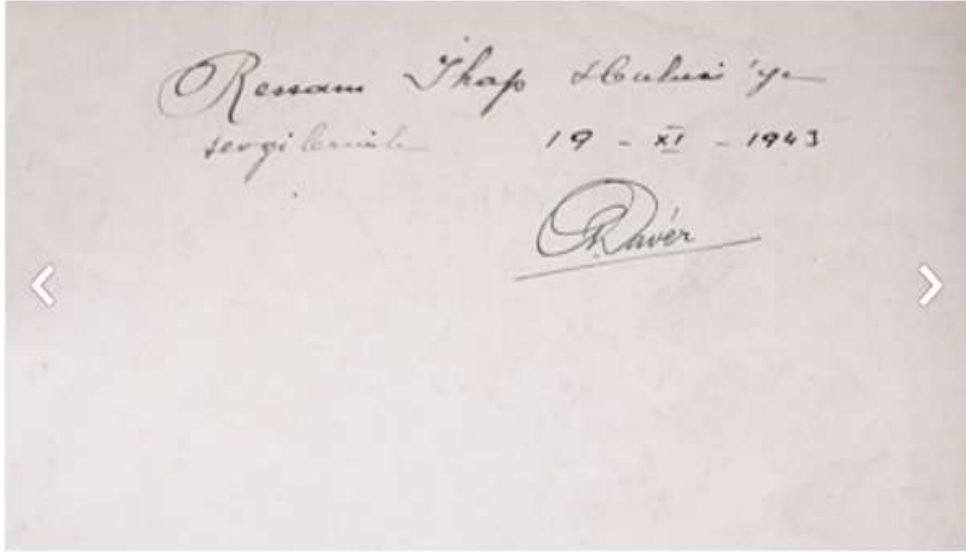 Ressam İhap Hulusi'ye
sevgilerimle 19 - XI - 1943
Davér